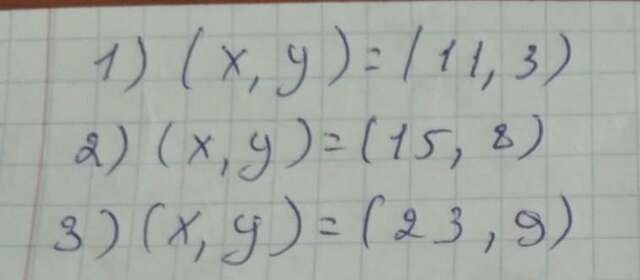 1) (x, y) = (11, 3)
2) (x, y) = (15, 8)
3) (x, y) = (23, 9)